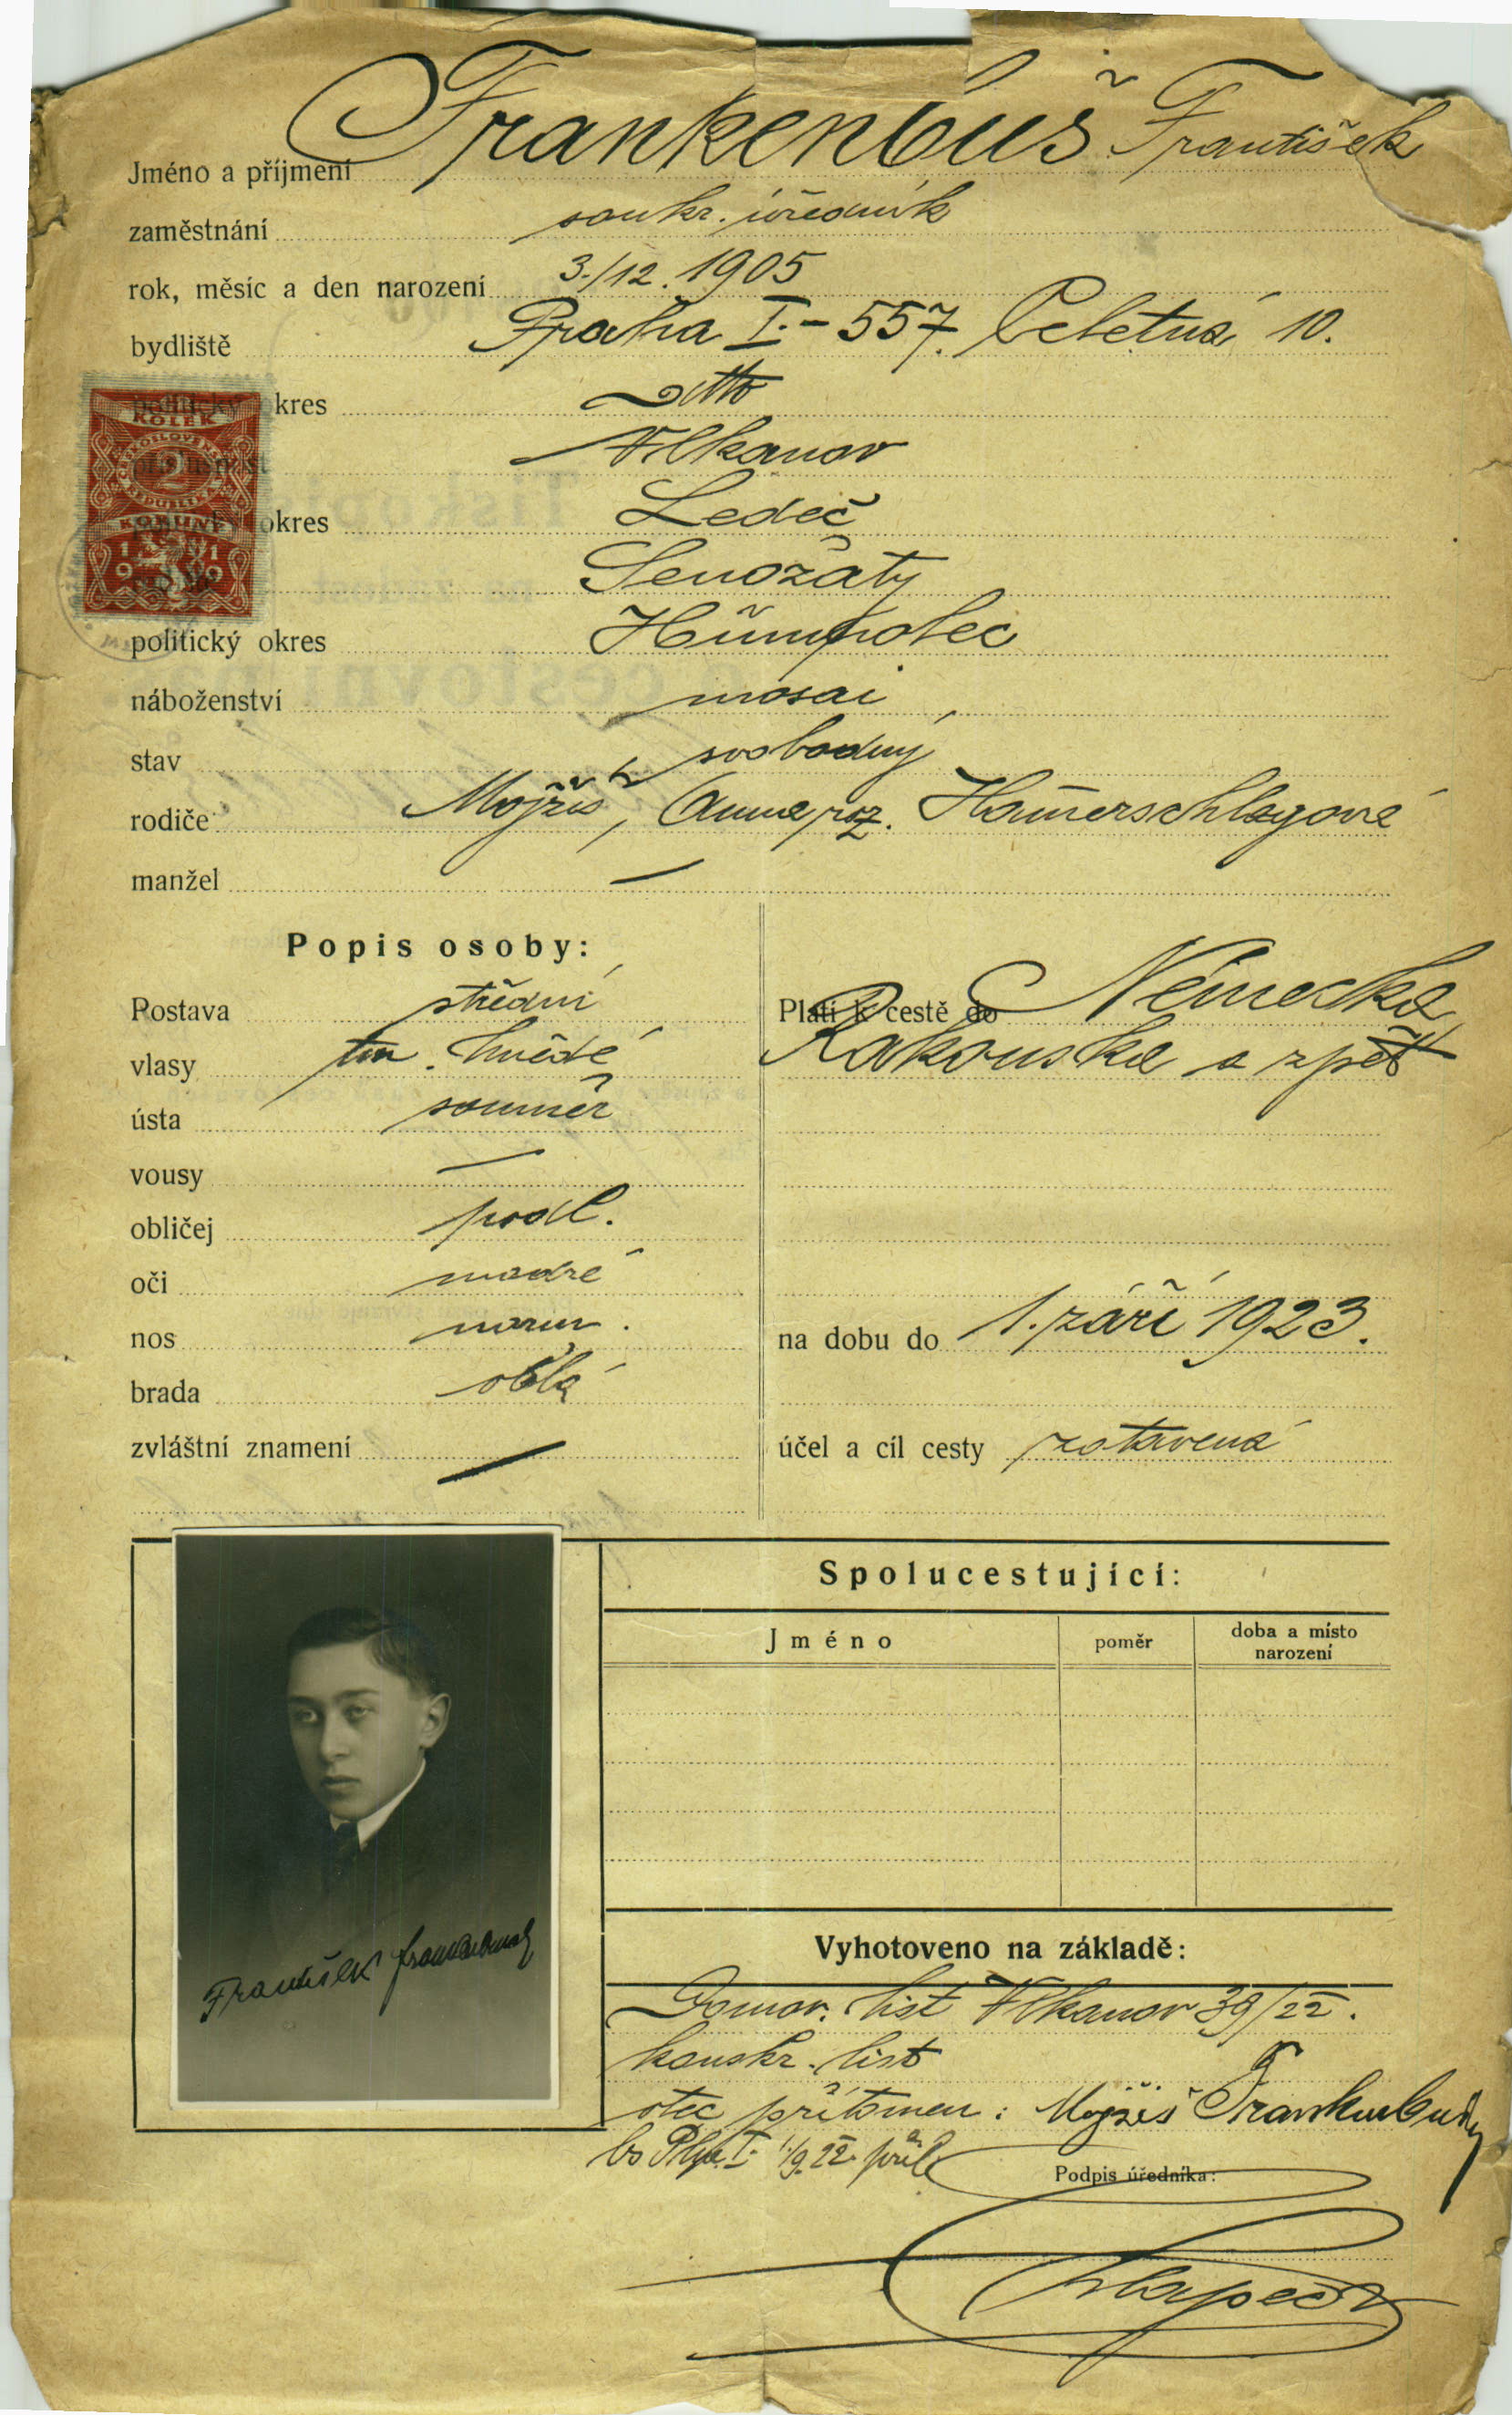 Jméno a příjmení Frankenbuš František
zaměstnání soukr. úředník
rok, měsíc a den narození 3./12. 1905
bydliště Praha I.-557. Celetná 10.
politický okres ditto
Vlkanov
okres Ledeč
Senožaty
politický okres Humpolec
náboženství mosai
stav svobodný
rodiče Mojžíš, Anna roz. Hamerschlagová
manžel —
Popis osoby:
Postava střední
vlasy tm. hnědé
ústa souměr
vousy —
obličej podl.
oči modré
nos norm.
brada oblá
zvláštní znamení —
Platí k cestě do Německa,
Rakouska a zpět
na dobu do 1. září 1923.
účel a cíl cesty zotavená
KOLEK
ČESKOSLOVENSKÁ
2
REPUBLIKA
KORUNY
1919
František Frankenbusch
Spolucestující:
Jméno poměr doba a místo narození
Vyhotoveno na základě:
Domov. list Vlkanov 39/22.
konskr. list
otec přítomen: Mojžíš Frankenbusch
Podpis úředníka: